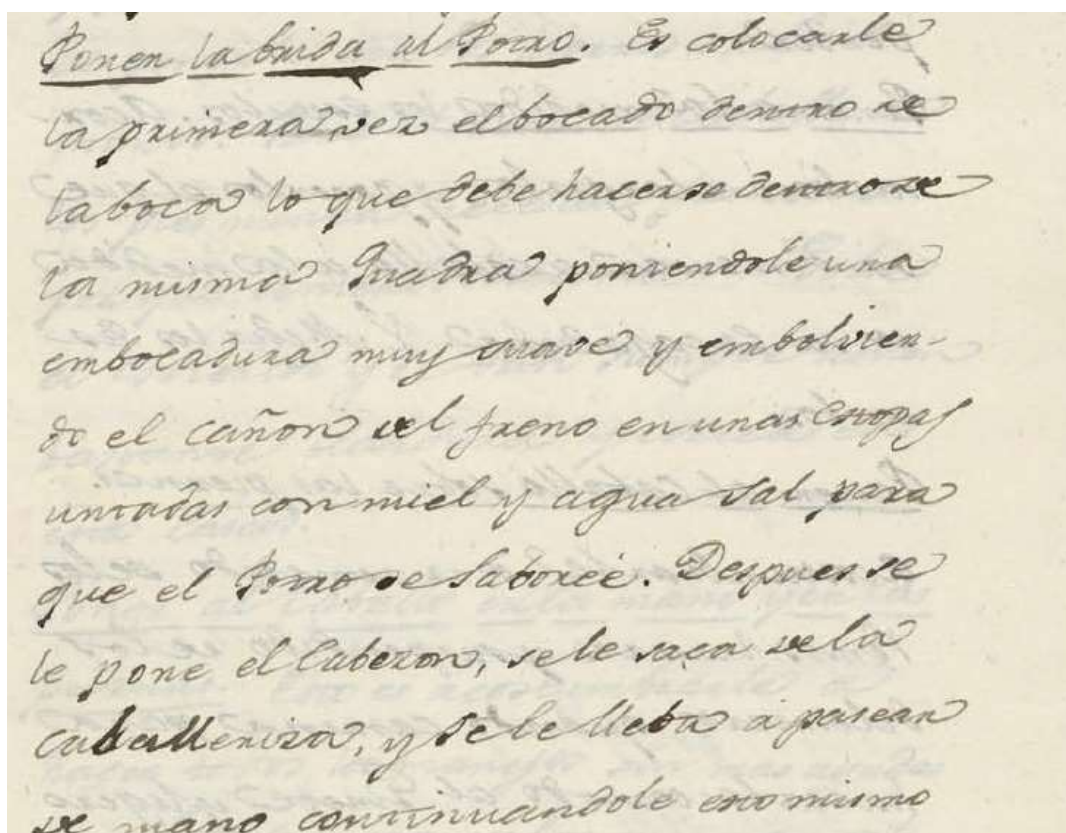 Poner la brida al Potro. Es colocarle
la primera vez el bocado dentro de
la boca lo que debe hacerse dentro de
la misma Quadra poniendole una
embocadura muy suave y embolvien-
do el cañon del freno en unas estopas
untadas con miel y agua sal para
que el Potro se saboreé. Despues se
le pone el Cabezon, se le saca de la
caballeriza, y se le lleba á pasear
de mano continuandole esto mismo